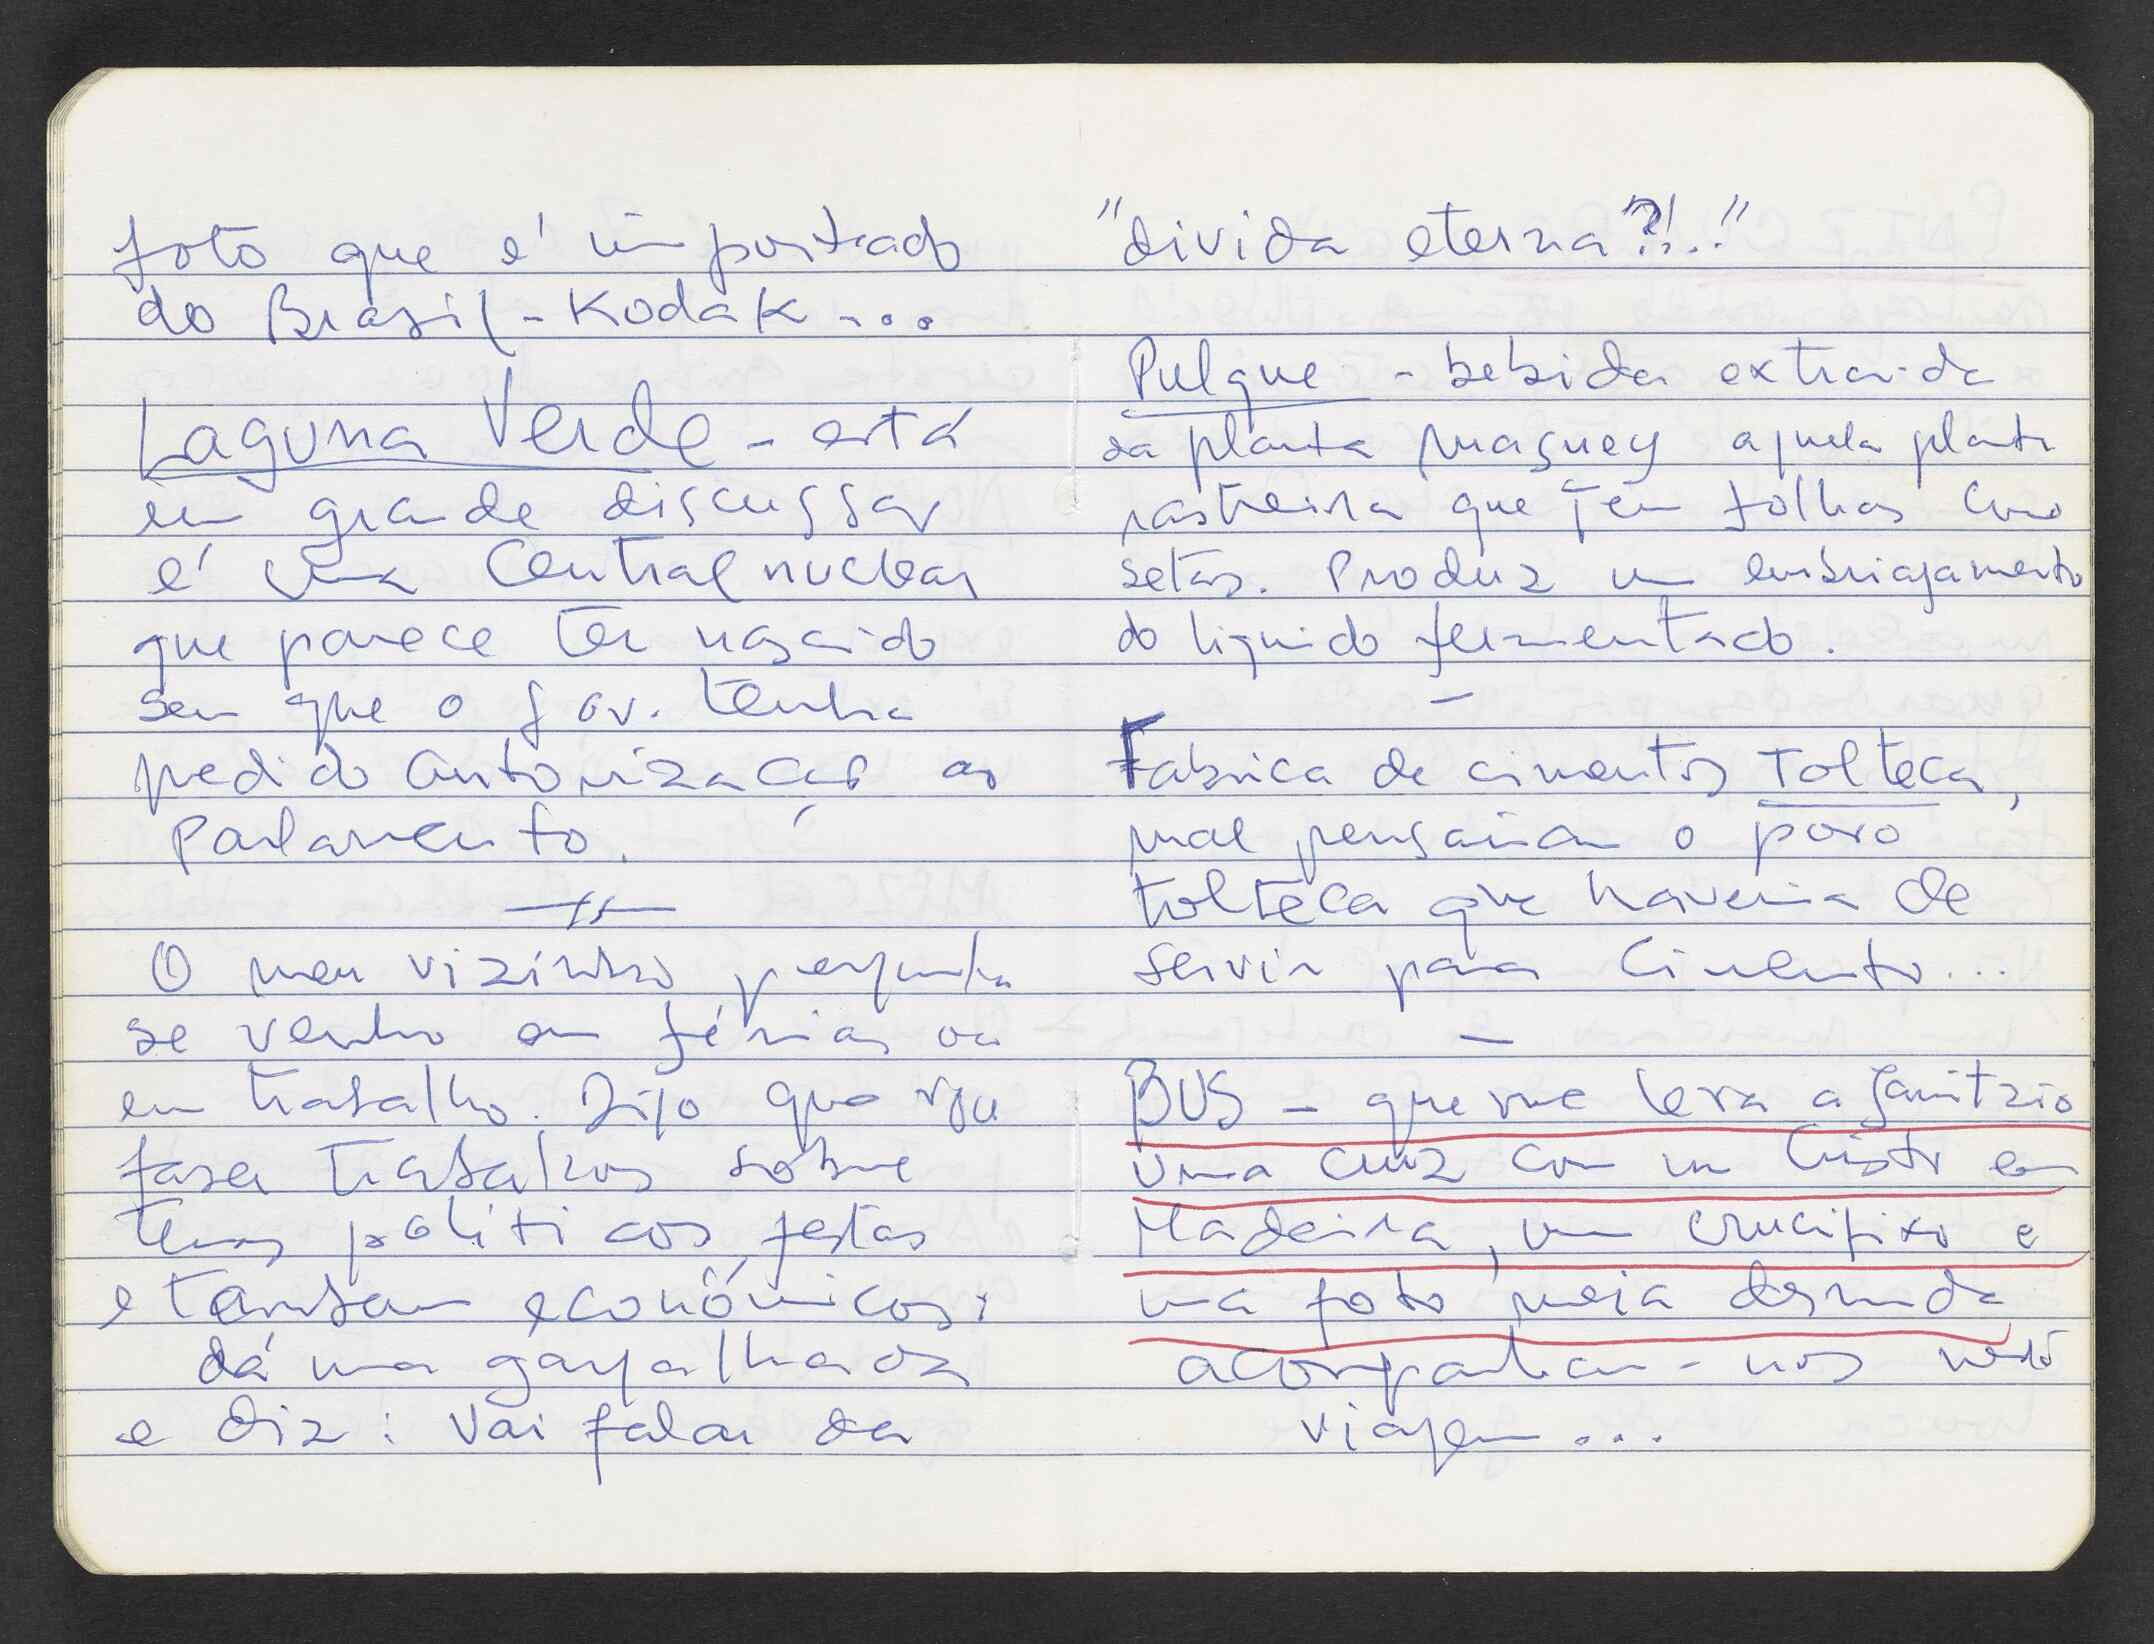 foto que é importado
do Brasil - Kodak - ...
Laguna Verde - está
em grande discussão
é uma Central nuclear
que parece ter nascido
sem que o gov. tenha
pedido autorização ao
Parlamento.
O meu vizinho pergunta
se venho em férias ou
em trabalho. Digo que vou
fazer trabalhos sobre
temas politicos, festas
e também económicos:
dá uma gargalhada
e diz: Vai falar da
"divida eterna?!..!"
Pulque - bebida extraida
da planta maguey aquela planta
rastreira que tem folhas como
setas. Produz um embriagamento
do liquido fermentado.
-
Fabrica de cimentos Tolteca,
mal pensaria o povo
tolteca que haveria de
servir para Cimento...
-
BUS - que me leva a Janitzio
uma cruz com um Cristo em
Madeira, um crucifixo e
uma foto meia desnuda
acompanham-nos nesta
viagem...